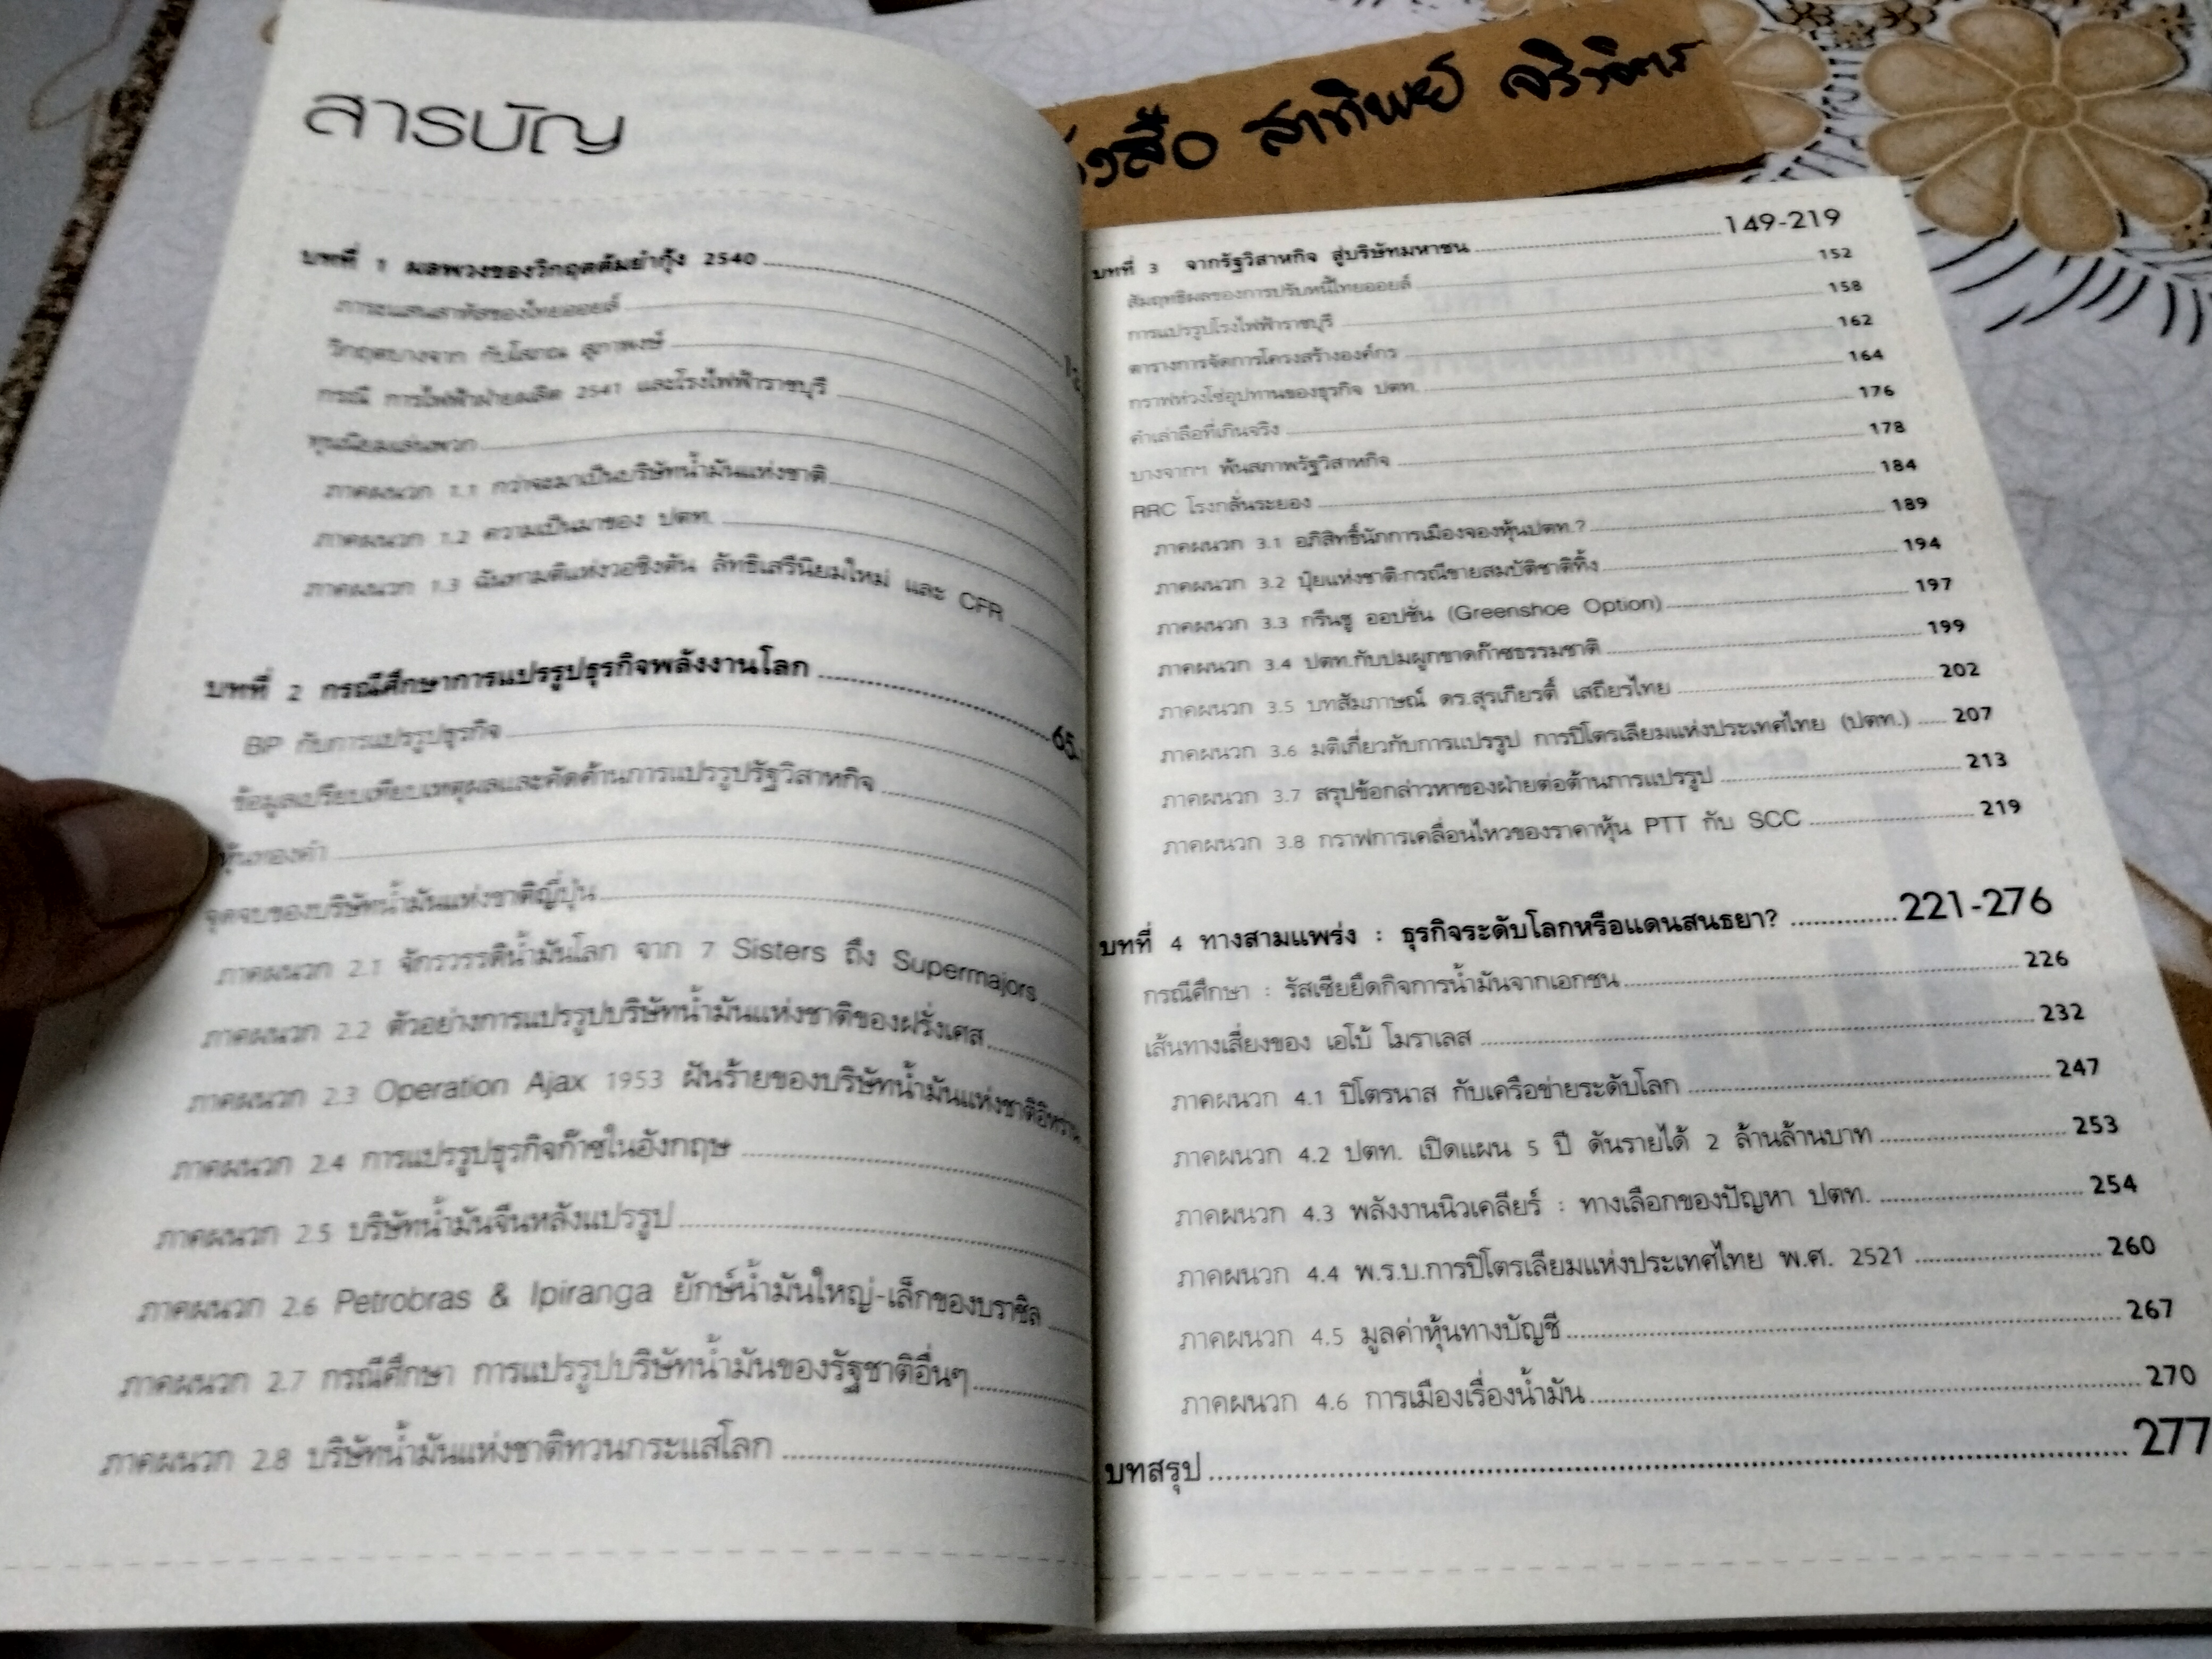 สารบัญ
บทที่ 1 ผลพวงของวิกฤตต้มยำกุ้ง 2540
ภาระแสนสาหัสของไทยออยล์
วิกฤตบางจาก กับโสภณ สุภาพงษ์
กรณี การไฟฟ้าฝ่ายผลิต 2541 และโรงไฟฟ้าราชบุรี
ทุนนิยมเล่นพวก
ภาคผนวก 1.1 กว่าจะมาเป็นบริษัทน้ำมันแห่งชาติ
ภาคผนวก 1.2 ความเป็นมาของ ปตท.
ภาคผนวก 1.3 ฉันทามติแห่งวอชิงตัน ลัทธิเสรีนิยมใหม่ และ CFR
บทที่ 2 กรณีศึกษาการแปรรูปธุรกิจพลังงานโลก 65
BP กับการแปรรูปธุรกิจ
ข้อมูลเปรียบเทียบเหตุผลและคัดค้านการแปรรูปรัฐวิสาหกิจ
หุ้นทองคำ
จุดจบของบริษัทน้ำมันแห่งชาติญี่ปุ่น
ภาคผนวก 2.1 จักรวรรดิน้ำมันโลก จาก 7 Sisters ถึง Supermajors
ภาคผนวก 2.2 ตัวอย่างการแปรรูปบริษัทน้ำมันแห่งชาติของฝรั่งเศส
ภาคผนวก 2.3 Operation Ajax 1953 ฝันร้ายของบริษัทน้ำมันแห่งชาติอิหร่าน
ภาคผนวก 2.4 การแปรรูปธุรกิจก๊าซในอังกฤษ
ภาคผนวก 2.5 บริษัทน้ำมันจีนหลังแปรรูป
ภาคผนวก 2.6 Petrobras & Ipiranga ยักษ์น้ำมันใหญ่-เล็กของบราซิล
ภาคผนวก 2.7 กรณีศึกษา การแปรรูปบริษัทน้ำมันของรัฐชาติอื่นๆ
ภาคผนวก 2.8 บริษัทน้ำมันแห่งชาติทวนกระแสโลก
สาทิพย์ จริงจิตร
บทที่ 3 จากรัฐวิสาหกิจ สู่บริษัทมหาชน 149-219
สัมฤทธิผลของการปรับหนี้ไทยออยล์ 152
การแปรรูปโรงไฟฟ้าราชบุรี 158
ตารางการจัดการโครงสร้างองค์กร 162
กราฟห่วงโซ่อุปทานของธุรกิจ ปตท. 164
คำเล่าลือที่เกินจริง 176
บางจากฯ พ้นสภาพรัฐวิสาหกิจ 178
RRC โรงกลั่นระยอง 184
ภาคผนวก 3.1 อภิสิทธิ์นักการเมืองจองหุ้นปตท.? 189
ภาคผนวก 3.2 ปุ๋ยแห่งชาติ:กรณีขายสมบัติชาติทิ้ง 194
ภาคผนวก 3.3 กรีนชู ออปชั่น (Greenshoe Option) 197
ภาคผนวก 3.4 ปตท.กับปมผูกขาดก๊าซธรรมชาติ 199
ภาคผนวก 3.5 บทสัมภาษณ์ ดร.สุรเกียรติ์ เสถียรไทย 202
ภาคผนวก 3.6 มติเกี่ยวกับการแปรรูป การปิโตรเลียมแห่งประเทศไทย (ปตท.) 207
ภาคผนวก 3.7 สรุปข้อกล่าวหาของฝ่ายต่อต้านการแปรรูป 213
ภาคผนวก 3.8 กราฟการเคลื่อนไหวของราคาหุ้น PTT กับ SCC 219
บทที่ 4 ทางสามแพร่ง : ธุรกิจระดับโลกหรือแดนสนธยา? 221-276
กรณีศึกษา : รัสเซียยึดกิจการน้ำมันจากเอกชน 226
เส้นทางเสี่ยงของ เอโบ้ โมราเลส 232
ภาคผนวก 4.1 ปิโตรนาส กับเครือข่ายระดับโลก 247
ภาคผนวก 4.2 ปตท. เปิดแผน 5 ปี ดันรายได้ 2 ล้านล้านบาท 253
ภาคผนวก 4.3 พลังงานนิวเคลียร์ : ทางเลือกของปัญหา ปตท. 254
ภาคผนวก 4.4 พ.ร.บ.การปิโตรเลียมแห่งประเทศไทย พ.ศ. 2521 260
ภาคผนวก 4.5 มูลค่าหุ้นทางบัญชี 267
ภาคผนวก 4.6 การเมืองเรื่องน้ำมัน 270
บทสรุป 277